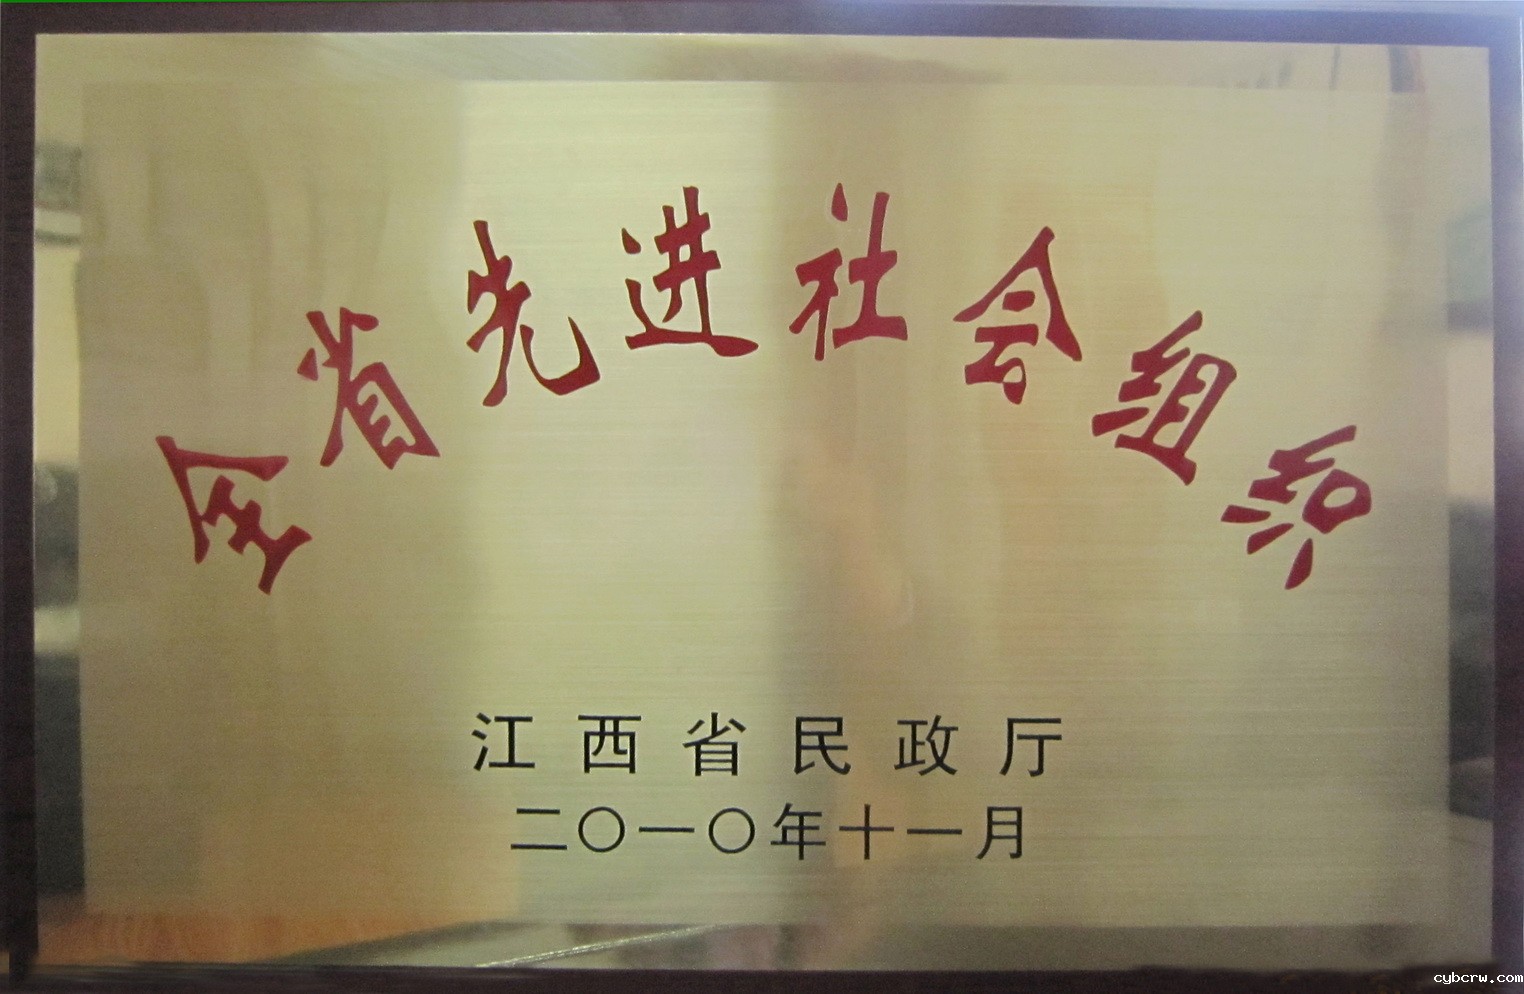 全省先进社会组织
江西省民政厅
二〇一〇年十一月
cybcrw.com